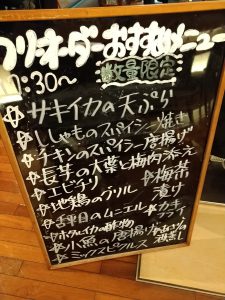 フリーオーダーおすすめメニュー
数量限定
☆サキイカの天ぷら
☆ししゃものスパイシー焼き
☆チキンのスパイシー唐揚げ
☆長芋の大葉と梅肉添え
☆エビチリ
☆梅茶漬け
☆地鶏のグリル
☆舌平目のムニエル
☆カキフライ
☆ホタルイカの酢物
☆小魚の唐揚げ
酒蒸し
☆ミックスピクルス